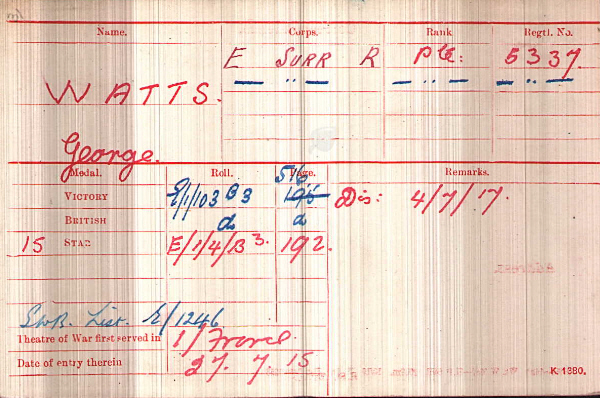 Name. Corps. Rank Regtl. No.
E SURR R Pte: 5337.
— „ — — „ — — „ —
WATTS.
George.
Medal. Roll. Page. Remarks.
516
VICTORY E/1/103 B3 195 Dis: 4/7/17.
BRITISH do do
15 STAR E/1/4/B3. 192.
SWB. List. E/1246.
Theatre of War first served in 1/France.
Date of entry therein 27. 7. 15
K 1380.